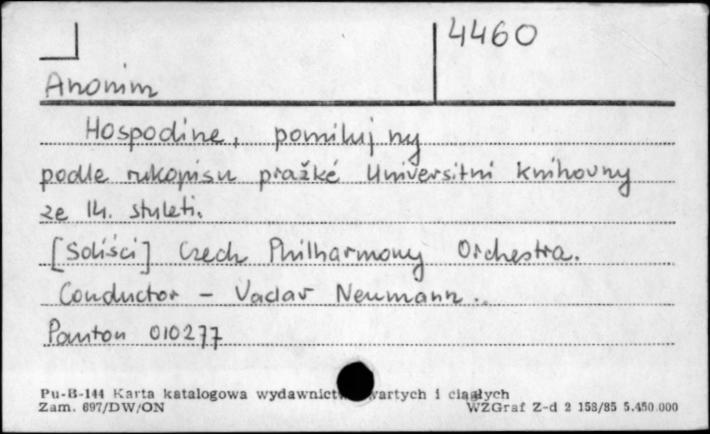 4460
Anonim
Hospodine, pomiluj ny
podle rukopisu pražké Universitní knihovny
ze 14. styleti.
[Soliści] Czech Philharmony Orchestra.
Conductor - Vaclav Neumann..
Panton 010277
Pu-B-144 Karta katalogowa wydawnict wartych i ciągłych
Zam. 697/DW/ON WZGraf Z-d 2 158/85 5.450.000